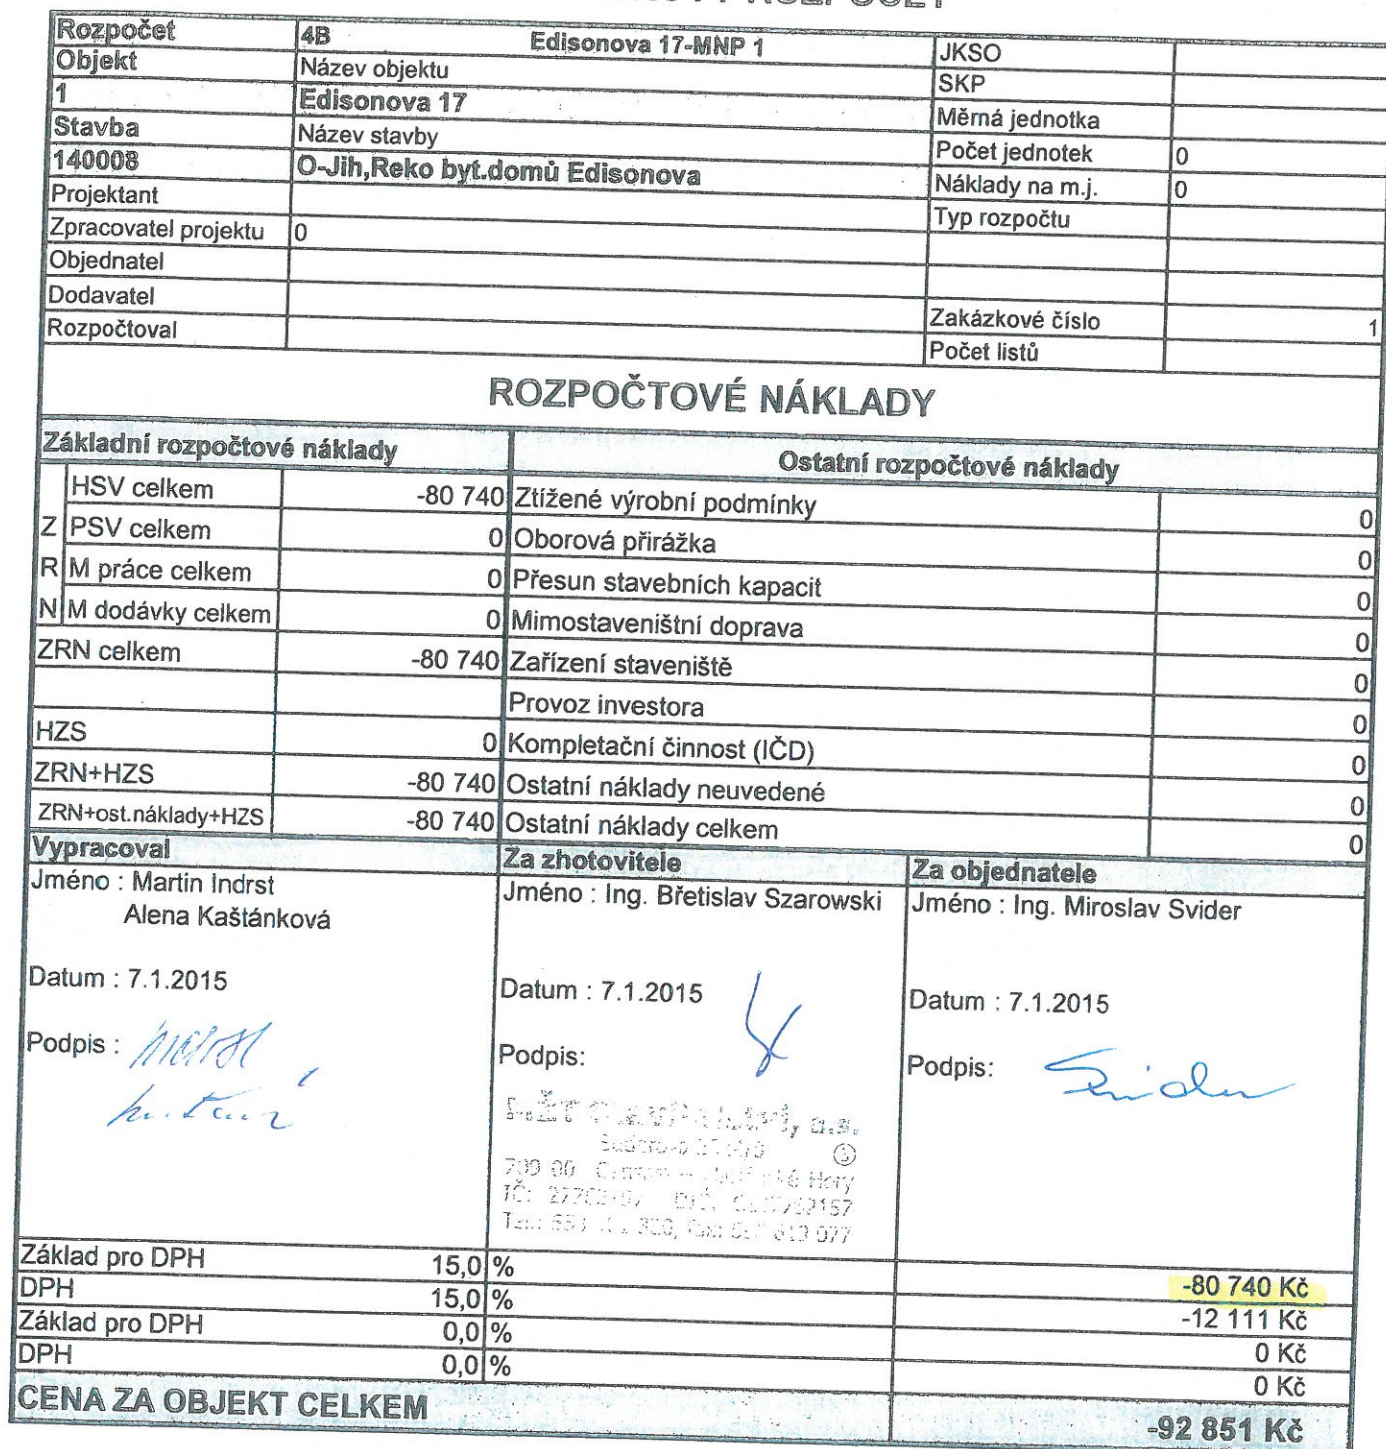 Rozpočet 4B Edisonova 17-MNP 1 JKSO
Objekt Název objektu SKP
1 Edisonova 17 Měrná jednotka
Stavba Název stavby Počet jednotek 0
140008 O-Jih,Reko byt.domů Edisonova Náklady na m.j. 0
Projektant Typ rozpočtu
Zpracovatel projektu 0
Objednatel
Dodavatel Zakázkové číslo 1
Rozpočtoval Počet listů
ROZPOČTOVÉ NÁKLADY
Základní rozpočtové náklady Ostatní rozpočtové náklady
HSV celkem -80 740 Ztížené výrobní podmínky 0
Z PSV celkem 0 Oborová přirážka 0
R M práce celkem 0 Přesun stavebních kapacit 0
N M dodávky celkem 0 Mimostaveništní doprava 0
ZRN celkem -80 740 Zařízení staveniště 0
Provoz investora 0
HZS 0 Kompletační činnost (IČD) 0
ZRN+HZS -80 740 Ostatní náklady neuvedené 0
ZRN+ost.náklady+HZS -80 740 Ostatní náklady celkem 0
Vypracoval Za zhotovitele Za objednatele
Jméno : Martin Indrst Jméno : Ing. Břetislav Szarowski Jméno : Ing. Miroslav Svider
Alena Kaštánková
Datum : 7.1.2015 Datum : 7.1.2015 Datum : 7.1.2015
Podpis : Podpis: Podpis: Svider
a.s.
709 00 Hory
Základ pro DPH 15,0 % -80 740 Kč
DPH 15,0 % -12 111 Kč
Základ pro DPH 0,0 % 0 Kč
DPH 0,0 % 0 Kč
CENA ZA OBJEKT CELKEM -92 851 Kč